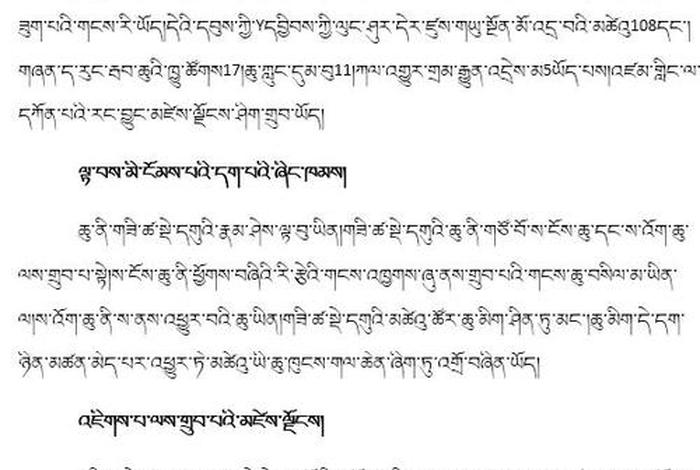 ཟུག་པའི་གངས་རི་ཡོད།དེའི་དབུས་ཀྱི་Yདབྱིབས་ཀྱི་ལུང་ཤུར་དེར་ཇུས་གཡུ་སྔོན་མོ་འདྲ་བའི་མཚེའུ108དང་།
གཞན་ད་རུང་རྦབ་ཆུའི་ཁྱུ་ཚོགས17།ཆུ་ཀླུང་དུམ་བུ11།ཀལ་འགྱུར་གྲམ་རྒྱུན་འདྲེས་མ5ཡོད་པས།འཛམ་གླིང་ལ་
དཀོན་པའི་རང་བྱུང་མཛེས་ལྗོངས་ཤིག་གྲུབ་ཡོད།
ལྟ་བས་མི་ངོམས་པའི་དག་པའི་ཞིང་ཁམས།
ཆུ་ནི་གཟི་ཚ་སྡེ་དགུའི་རྣམ་ཤེས་ལྟ་བུ་ཡིན།གཟི་ཚ་སྡེ་དགུའི་ཆུ་ནི་གཙོ་བོ་ས་ངོས་ཆུ་དང་ས་འོག་ཆུ་
ལས་གྲུབ་པ་སྟེ།ས་ངོས་ཆུ་ནི་ཕྱོགས་བཞིའི་རི་རྩེའི་གངས་འཁྱགས་ཞུ་ནས་གྲུབ་པའི་གངས་ཆུ་བསིལ་མ་ཡིན་
ལ།ས་འོག་ཆུ་ནི་ས་ནས་འཕྱུར་བའི་ཆུ་ཡིན།གཟི་ཚ་སྡེ་དགུའི་མཚེའུ་ཚོར་ཆུ་མིག་ཤིན་ཏུ་མང་།ཆུ་མིག་དེ་དག་
ཉིན་མཚན་མེད་པར་འཕྱུར་ཏེ་མཚེའུ་ཡི་ཆུ་ཁུངས་གལ་ཆེན་ཞིག་ཏུ་འགྲོ་བཞིན་ཡོད།
འཇིགས་པ་ལས་གྲུབ་པའི་མཛེས་ལྗོངས།